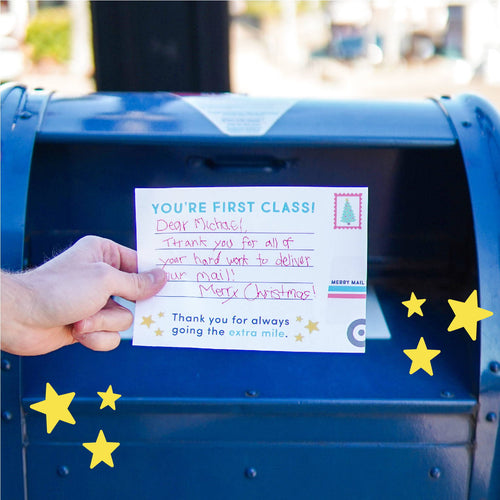 YOU'RE FIRST CLASS!
Dear Michael,
Thank you for all of
your hard work to deliver
our mail!
Merry Christmas!
MERRY MAIL
Thank you for always
going the extra mile.